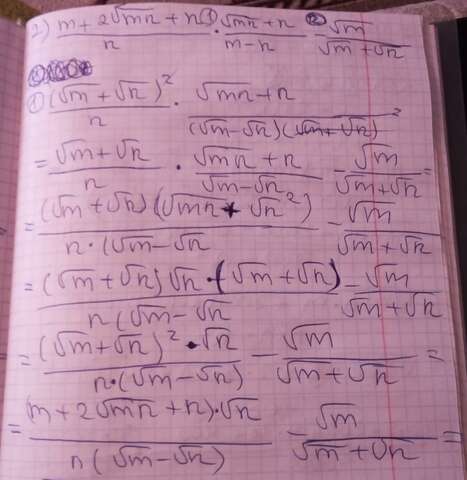 2) (m + 2√(mn) + n)/n ① · (√(mn) + n)/(m - n) ② - √m/(√m + √n)
① (√m + √n)²/n · (√(mn) + n)/((√m - √n)(√m + √n))
= (√m + √n)/n · (√(mn) + n)/(√m - √n) - √m/(√m + √n) =
= (√m + √n)(√(mn) + √n²)/(n·(√m - √n - √m/(√m + √n)
= (√m + √n)√n·(√m + √n)/(n(√m - √n - √m/(√m + √n)
= (√m + √n)²·√n/(n·(√m - √n)) - √m/(√m + √n) =
= (m + 2√(mn) + n)·√n/(n(√m - √n)) - √m/(√m + √n) =